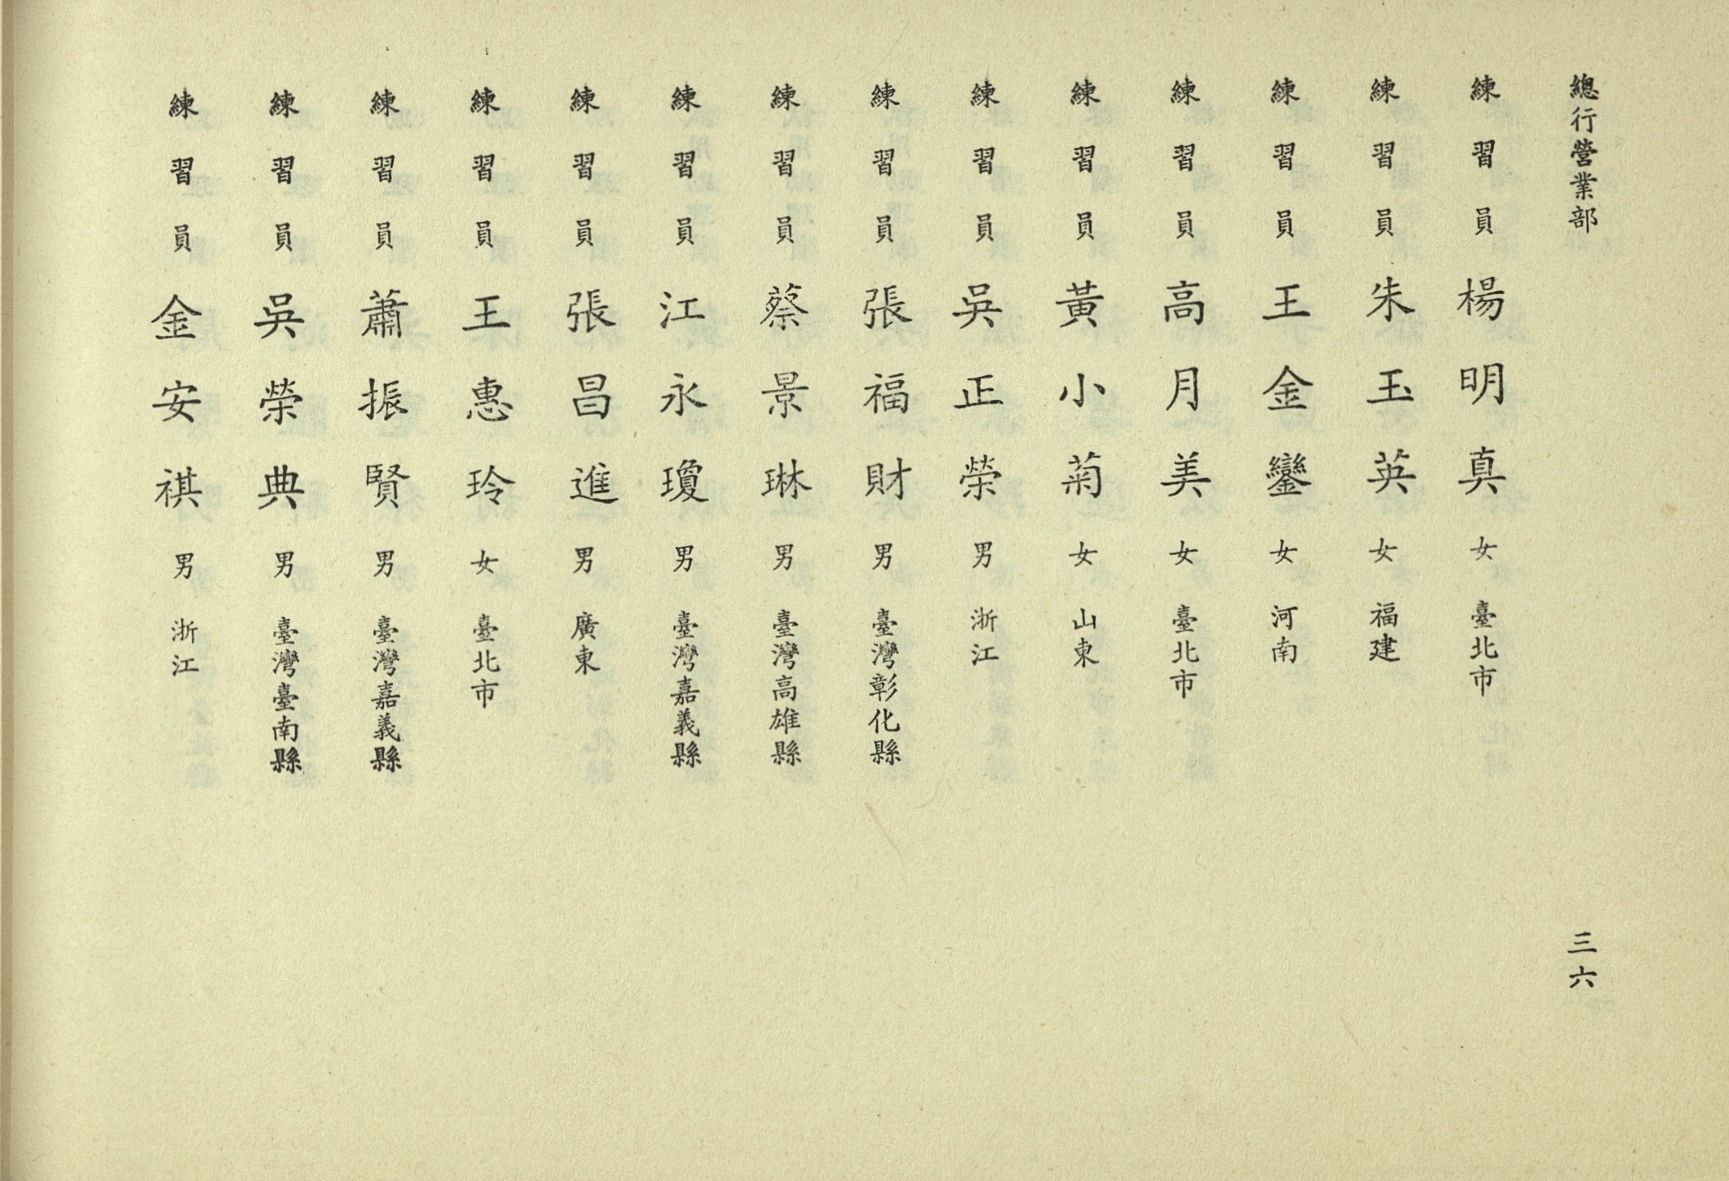 總行營業部
三六
練習員 楊明真 女 臺北市
練習員 朱玉英 女 福建
練習員 王金鑾 女 河南
練習員 高月美 女 臺北市
練習員 黃小菊 女 山東
練習員 吳正榮 男 浙江
練習員 張福財 男 臺灣彰化縣
練習員 蔡景琳 男 臺灣高雄縣
練習員 江永瓊 男 臺灣嘉義縣
練習員 張昌進 男 廣東
練習員 王惠玲 女 臺北市
練習員 蕭振賢 男 臺灣嘉義縣
練習員 吳榮典 男 臺灣臺南縣
練習員 金安祺 男 浙江